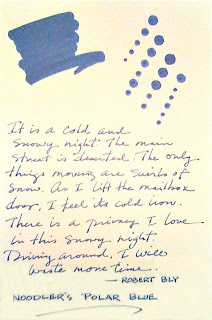 It is a cold and
snowy night. The main
street is deserted. The only
things moving are swirls of
snow. As I lift the mailbox
door, I feel its cold iron.
There is a privacy I love
in this snowy night.
Driving around, I will
waste more time.
— ROBERT BLY
NOODLER'S POLAR BLUE